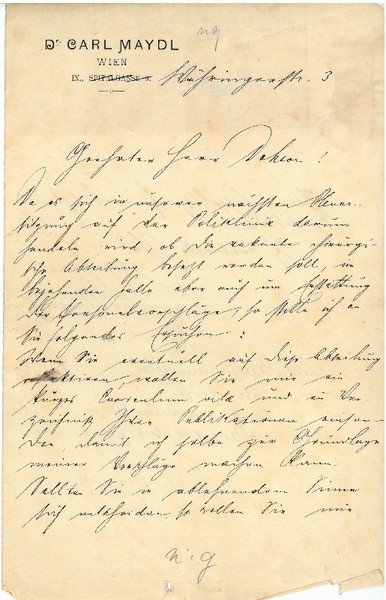 ng
Dr. CARL MAYDL
WIEN
IX., SPITALGASSE Währingerstr. 3
Geehrter Herr Doktor!
Da es sich in unserer nächsten Plenar-
sitzung auf der Poliklinik darum
handeln wird, ob die vakante chirurgi-
sche Abteilung besetzt werden soll, im
bejahenden Falle aber auch um Erstattung
der Personalvorschläge, so stelle ich an
Sie folgendes Ersuchen:
Wenn Sie eventuell auf diese Abteilung
reflektiren, wollen Sie mir ein
kurzes Curriculum vitae und ein Ver-
zeichniß Ihrer Publikationen einsen-
den damit ich selbe zur Grundlage
meiner Vorschläge machen kann.
Sollten Sie in ablehnendem Sinne
sich entscheiden so wollen Sie mir
n.g